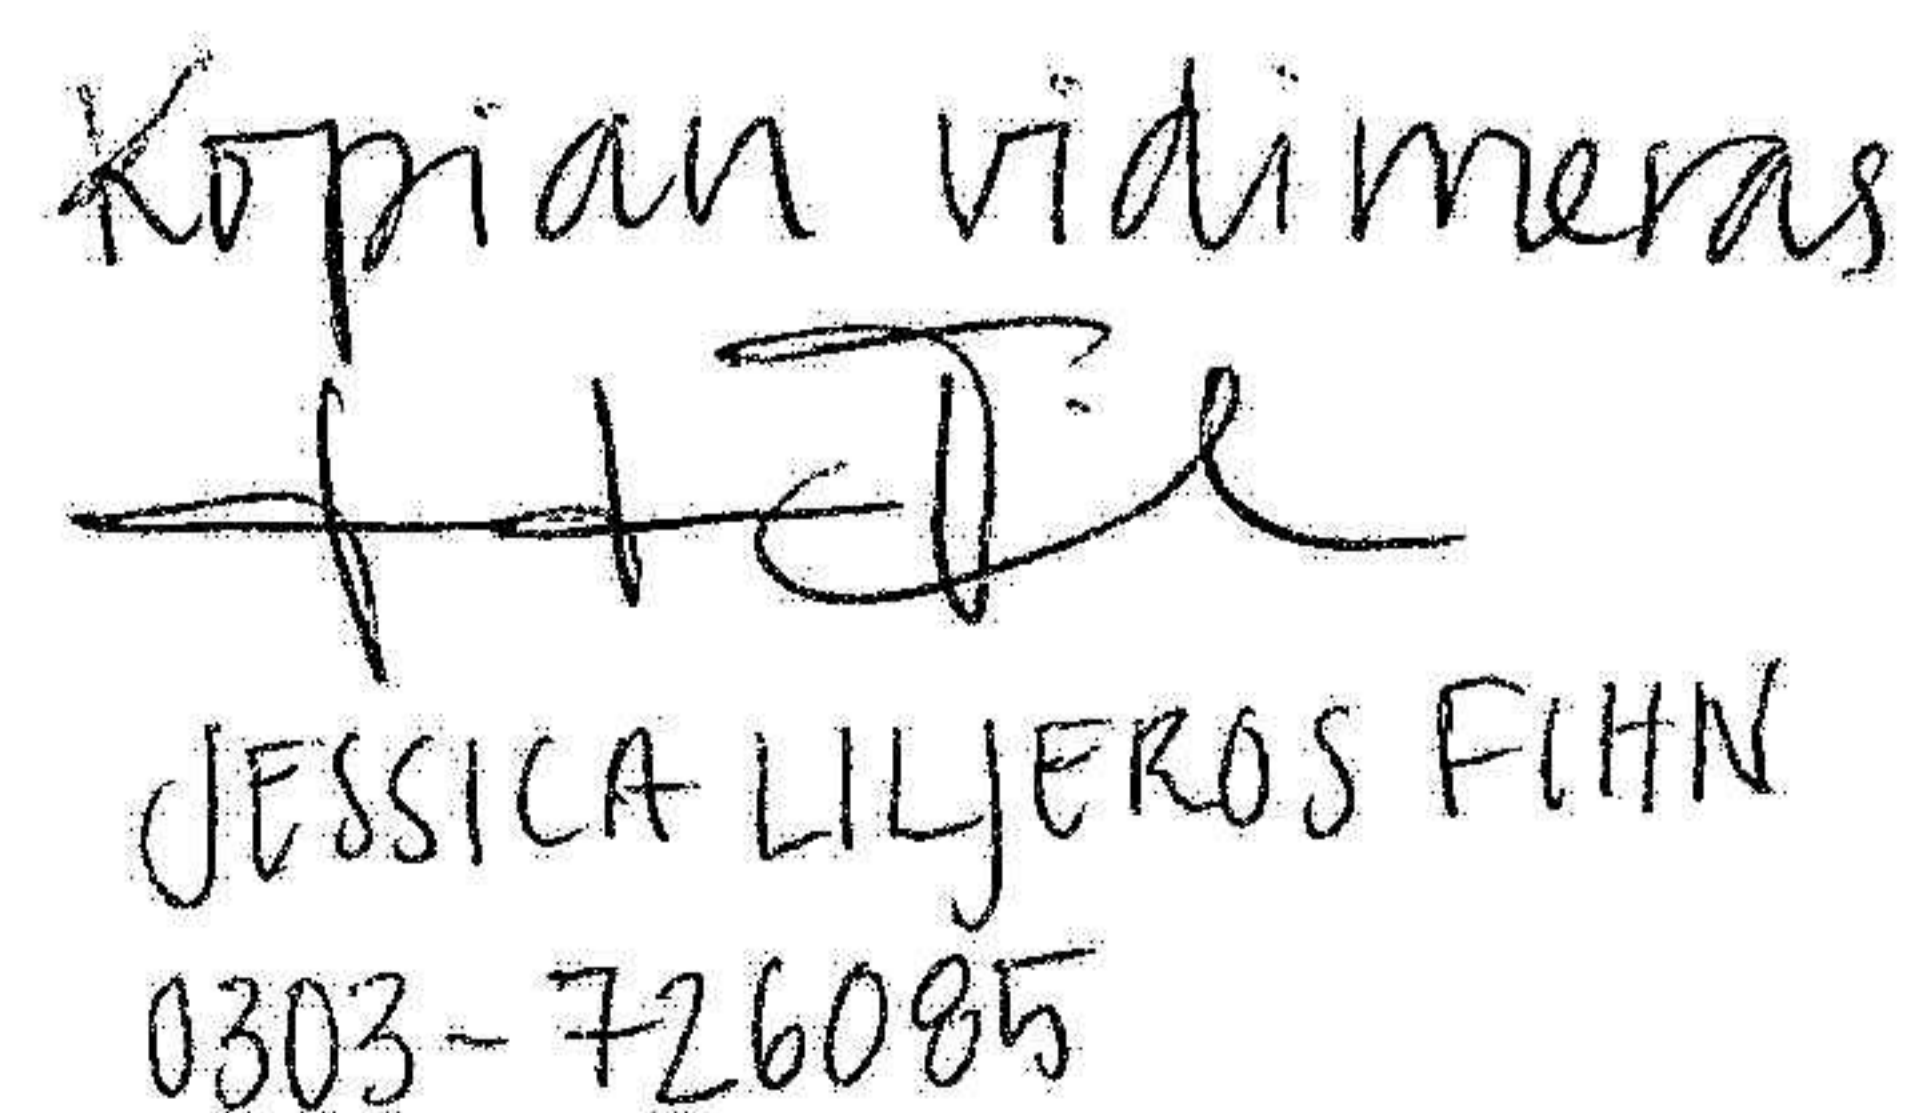 Kopian vidimeras
JESSICA LILJEROS FIHN
0303-726085